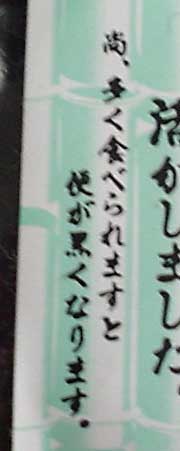 活かしました。
尚、多く食べられますと
便が黒くなります。